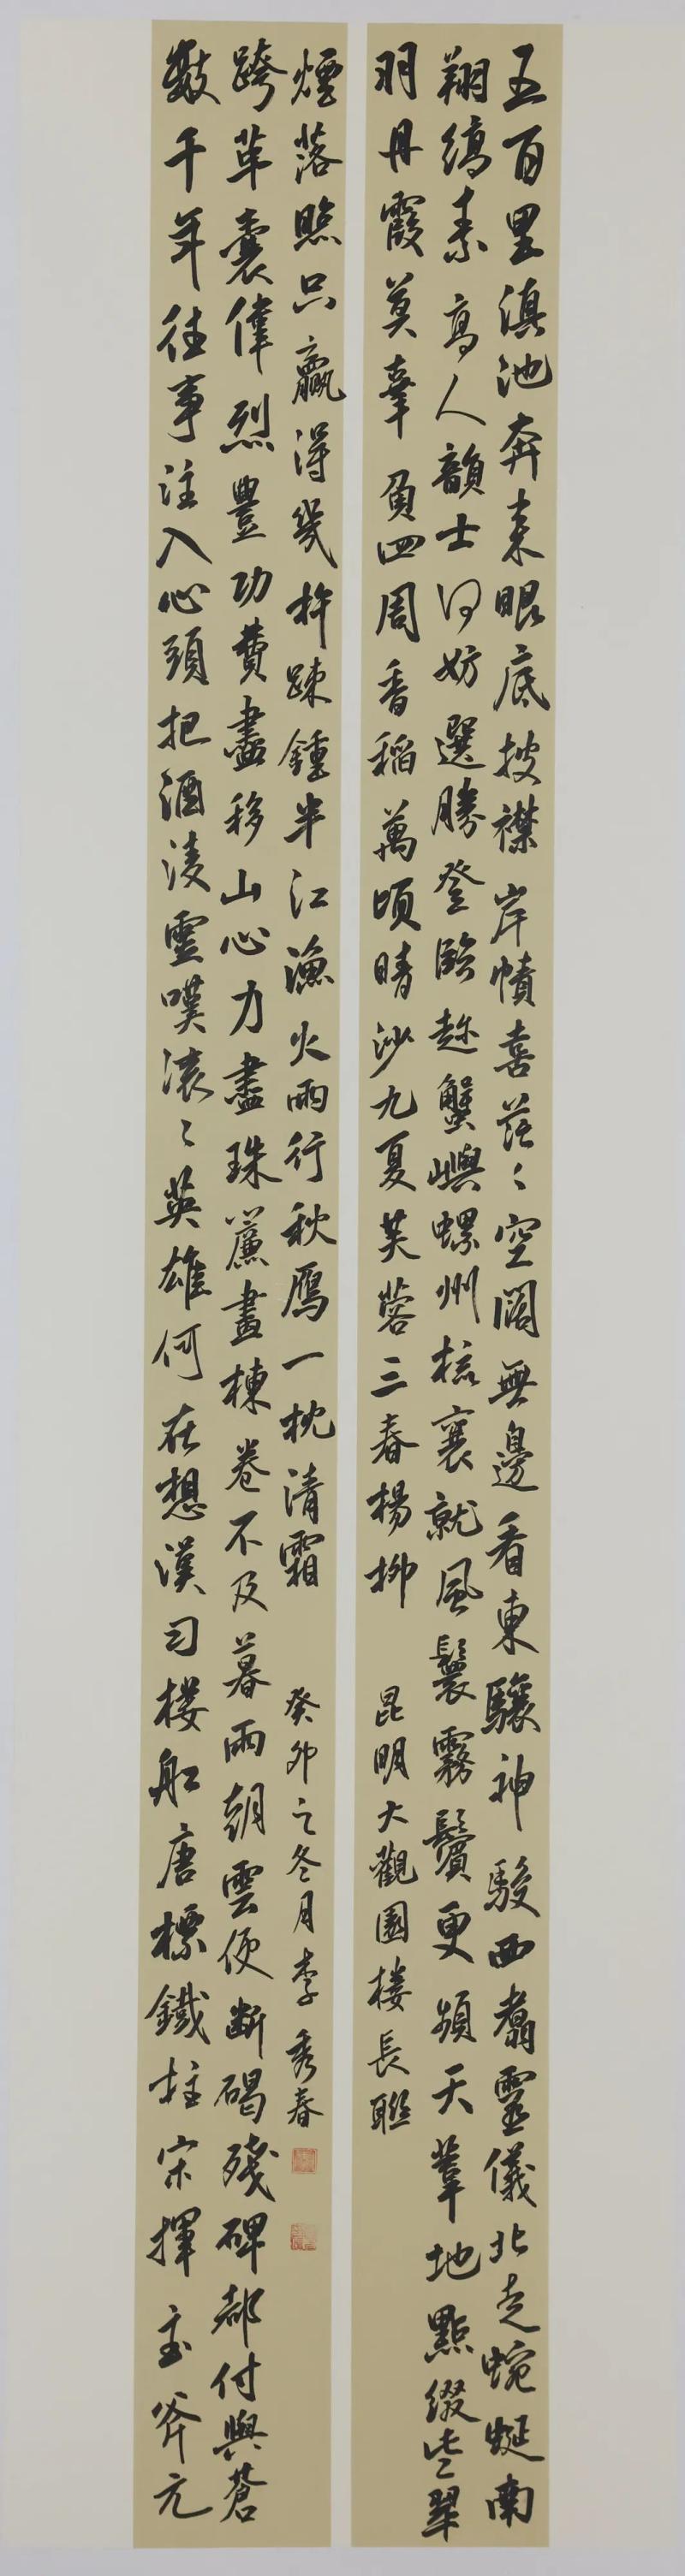 五百里滇池奔来眼底披襟岸幘喜茫〻空闊無邊看東驤神駿西翥靈儀北走蜿蜒南
翔縞素高人韻士何妨選勝登臨趁蟹嶼螺州梳裹就風鬟霧鬢更頻天葦地點綴些翠
羽丹霞莫辜負四周香稻萬頃晴沙九夏芙蓉三春楊柳
昆明大觀園樓長聯
數千年往事注入心頭把酒淩虛嘆滾〻英雄何在想漢習樓船唐標鐵柱宋揮玉斧元
跨革囊偉烈豐功費盡移山心力盡珠簾畫棟卷不及暮雨朝雲便斷碣殘碑都付與蒼
煙落照只贏得幾杵疎鍾半江漁火兩行秋鴈一枕清霜
癸卯之冬月李秀春